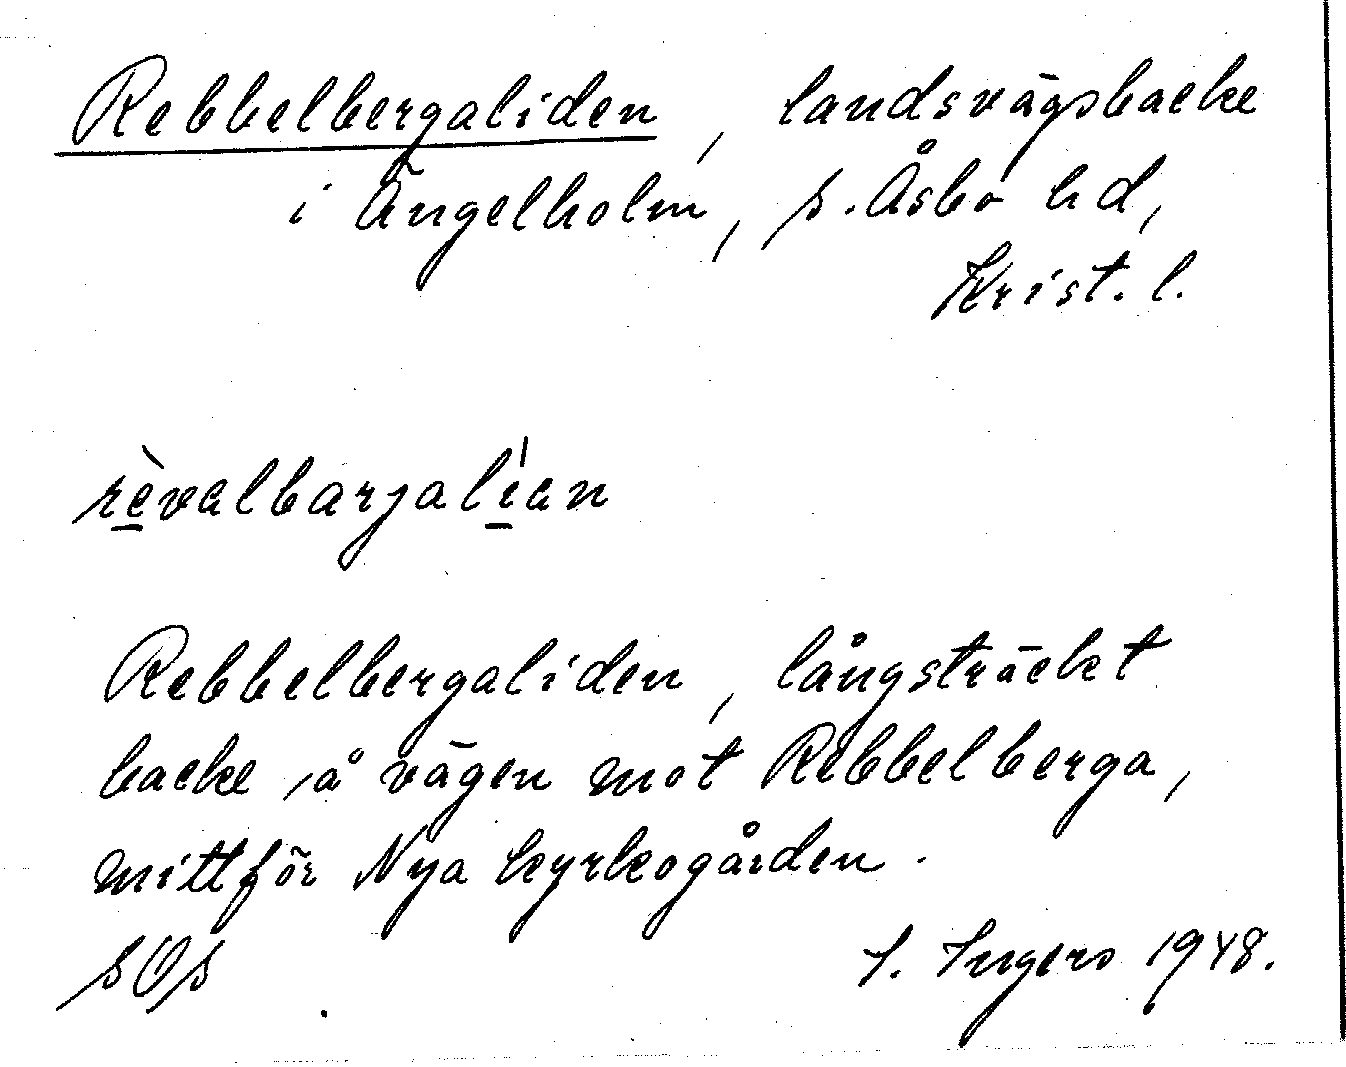 Rebbelbergaliden, landsvägsbacke
i Ängelholm, S. Åsbo hd,
Krist. l.
rèvalbarjalían
Rebbelbergaliden, långsträckt
backe å vägen mot Rebbelberga,
mittför Nya kyrkogården.
SOS I. Ingers 1948.